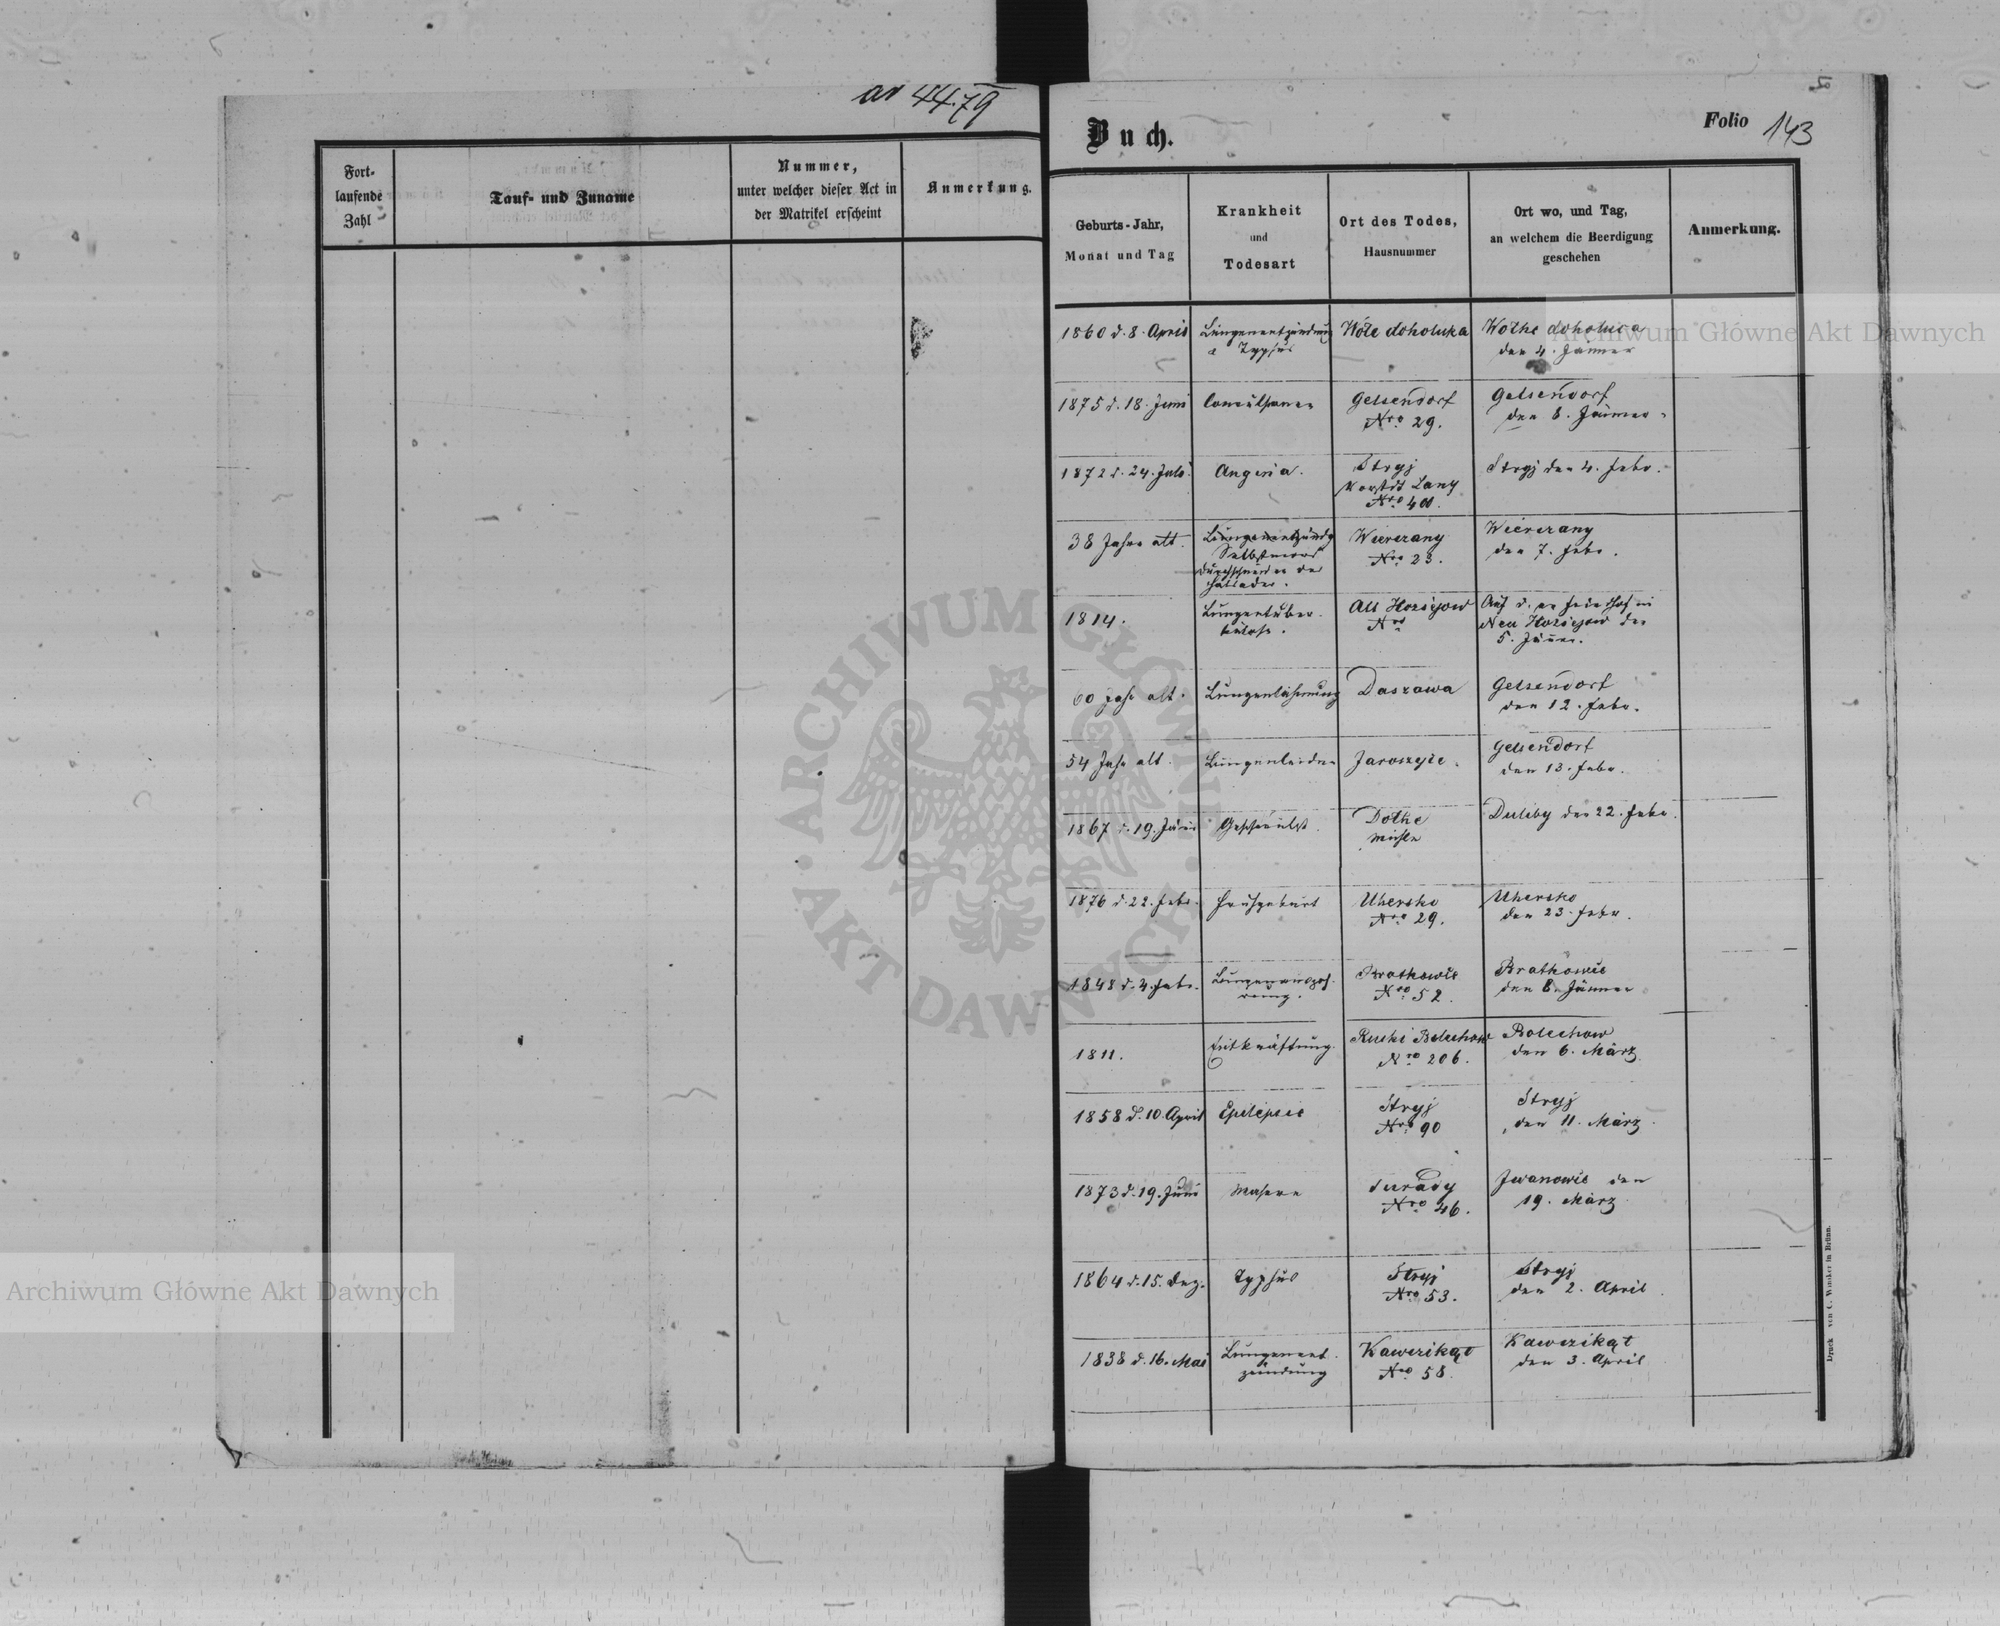 av 44.79
Fort-
laufende
Zahl
Tauf- und Zuname
Nummer,
unter welcher dieser Act in
der Matrikel erscheint
Anmerkung.
Buch.
Folio 143
Geburts-Jahr,
Monat und Tag
Krankheit
und
Todesart
Ort des Todes,
Hausnummer
Ort wo, und Tag,
an welchem die Beerdigung
geschehen
Anmerkung.
1860 d. 8. April
Lungenentzündung
Typhus
Wole doholuka
den 4. Jänner
1875 d. 18. Juni
Gelsendorf
Nro 29.
Gelsendorf
den 8. Jänner
1872 d. 24. Juli
Angina.
Stryj
Vorstdt Lany
Nro
Stryj den 4. Febr.
38 Jahre alt.
Lungenentzündg
Selbstmord
Durchschneiden der
Halsader.
Wierczany
Nro 23.
Wierczany
den 7. Febr.
1814.
Lungentuber-
kulose.
Alt Hoziejow
Nro
Neu Hoziejow den
5. Jänner.
60 Jahr alt.
Lungenlähmung
Daszawa
Gelsendorf
den 12. Febr.
54 Jahr alt.
Lungenleiden
Jaroszyce.
Gelsendorf
den 13. Febr.
1867 d. 19. Juni
Geschwulst.
Dolhe
Duliby den 22. Febr.
1876 d. 22. Febr.
Frühgeburt
Uhersko
Nro 29.
Uhersko
den 23. Febr.
1848 d. 4. Febr.
Bratkowic
Nro 52.
Bratkowic
den 8. Jänner
1811.
Entkräftung.
Ruski Bolechow
Nro 206.
Bolechow
den 6. März
1858 d. 10. April
Epilepsie
Stryj
Nro 90
Stryj
den 11. März.
1873 d. 19. Juni
Masern
Nro 46.
Jwanowic den
19. März
1864 d. 15. Dez.
Typhus
Stryj
Nro 53.
Stryj
den 2. April
1838 d. 16. Mai
Lungenent-
zündung
Kawczikąt
Nro 58.
Kawczikąt
den 3. April
Druck von C. Winiker in Brünn.
Archiwum Główne Akt Dawnych
Archiwum Główne Akt Dawnych
ARCHIWUM GŁÓWNE
AKT DAWNYCH